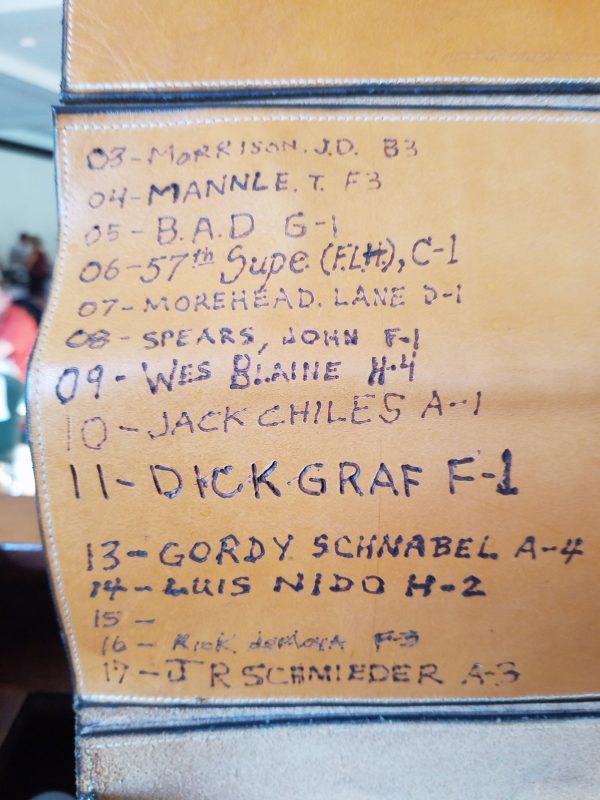 03-MORRISON. J.D. B3
04-MANNLE. T. F3
05-B.A.D G-1
06-57th Supe. (F.L.H.), C-1
07-MOREHEAD. LANE D-1
08-SPEARS, JOHN F-1
09-WES BLAINE H-4
10-JACK CHILES A-1
11-DICK GRAF F-1
13-GORDY SCHNABEL A-4
14-LUIS NIDO H-2
15-
16-RICK F-3
17-J R SCHMIEDER A-3